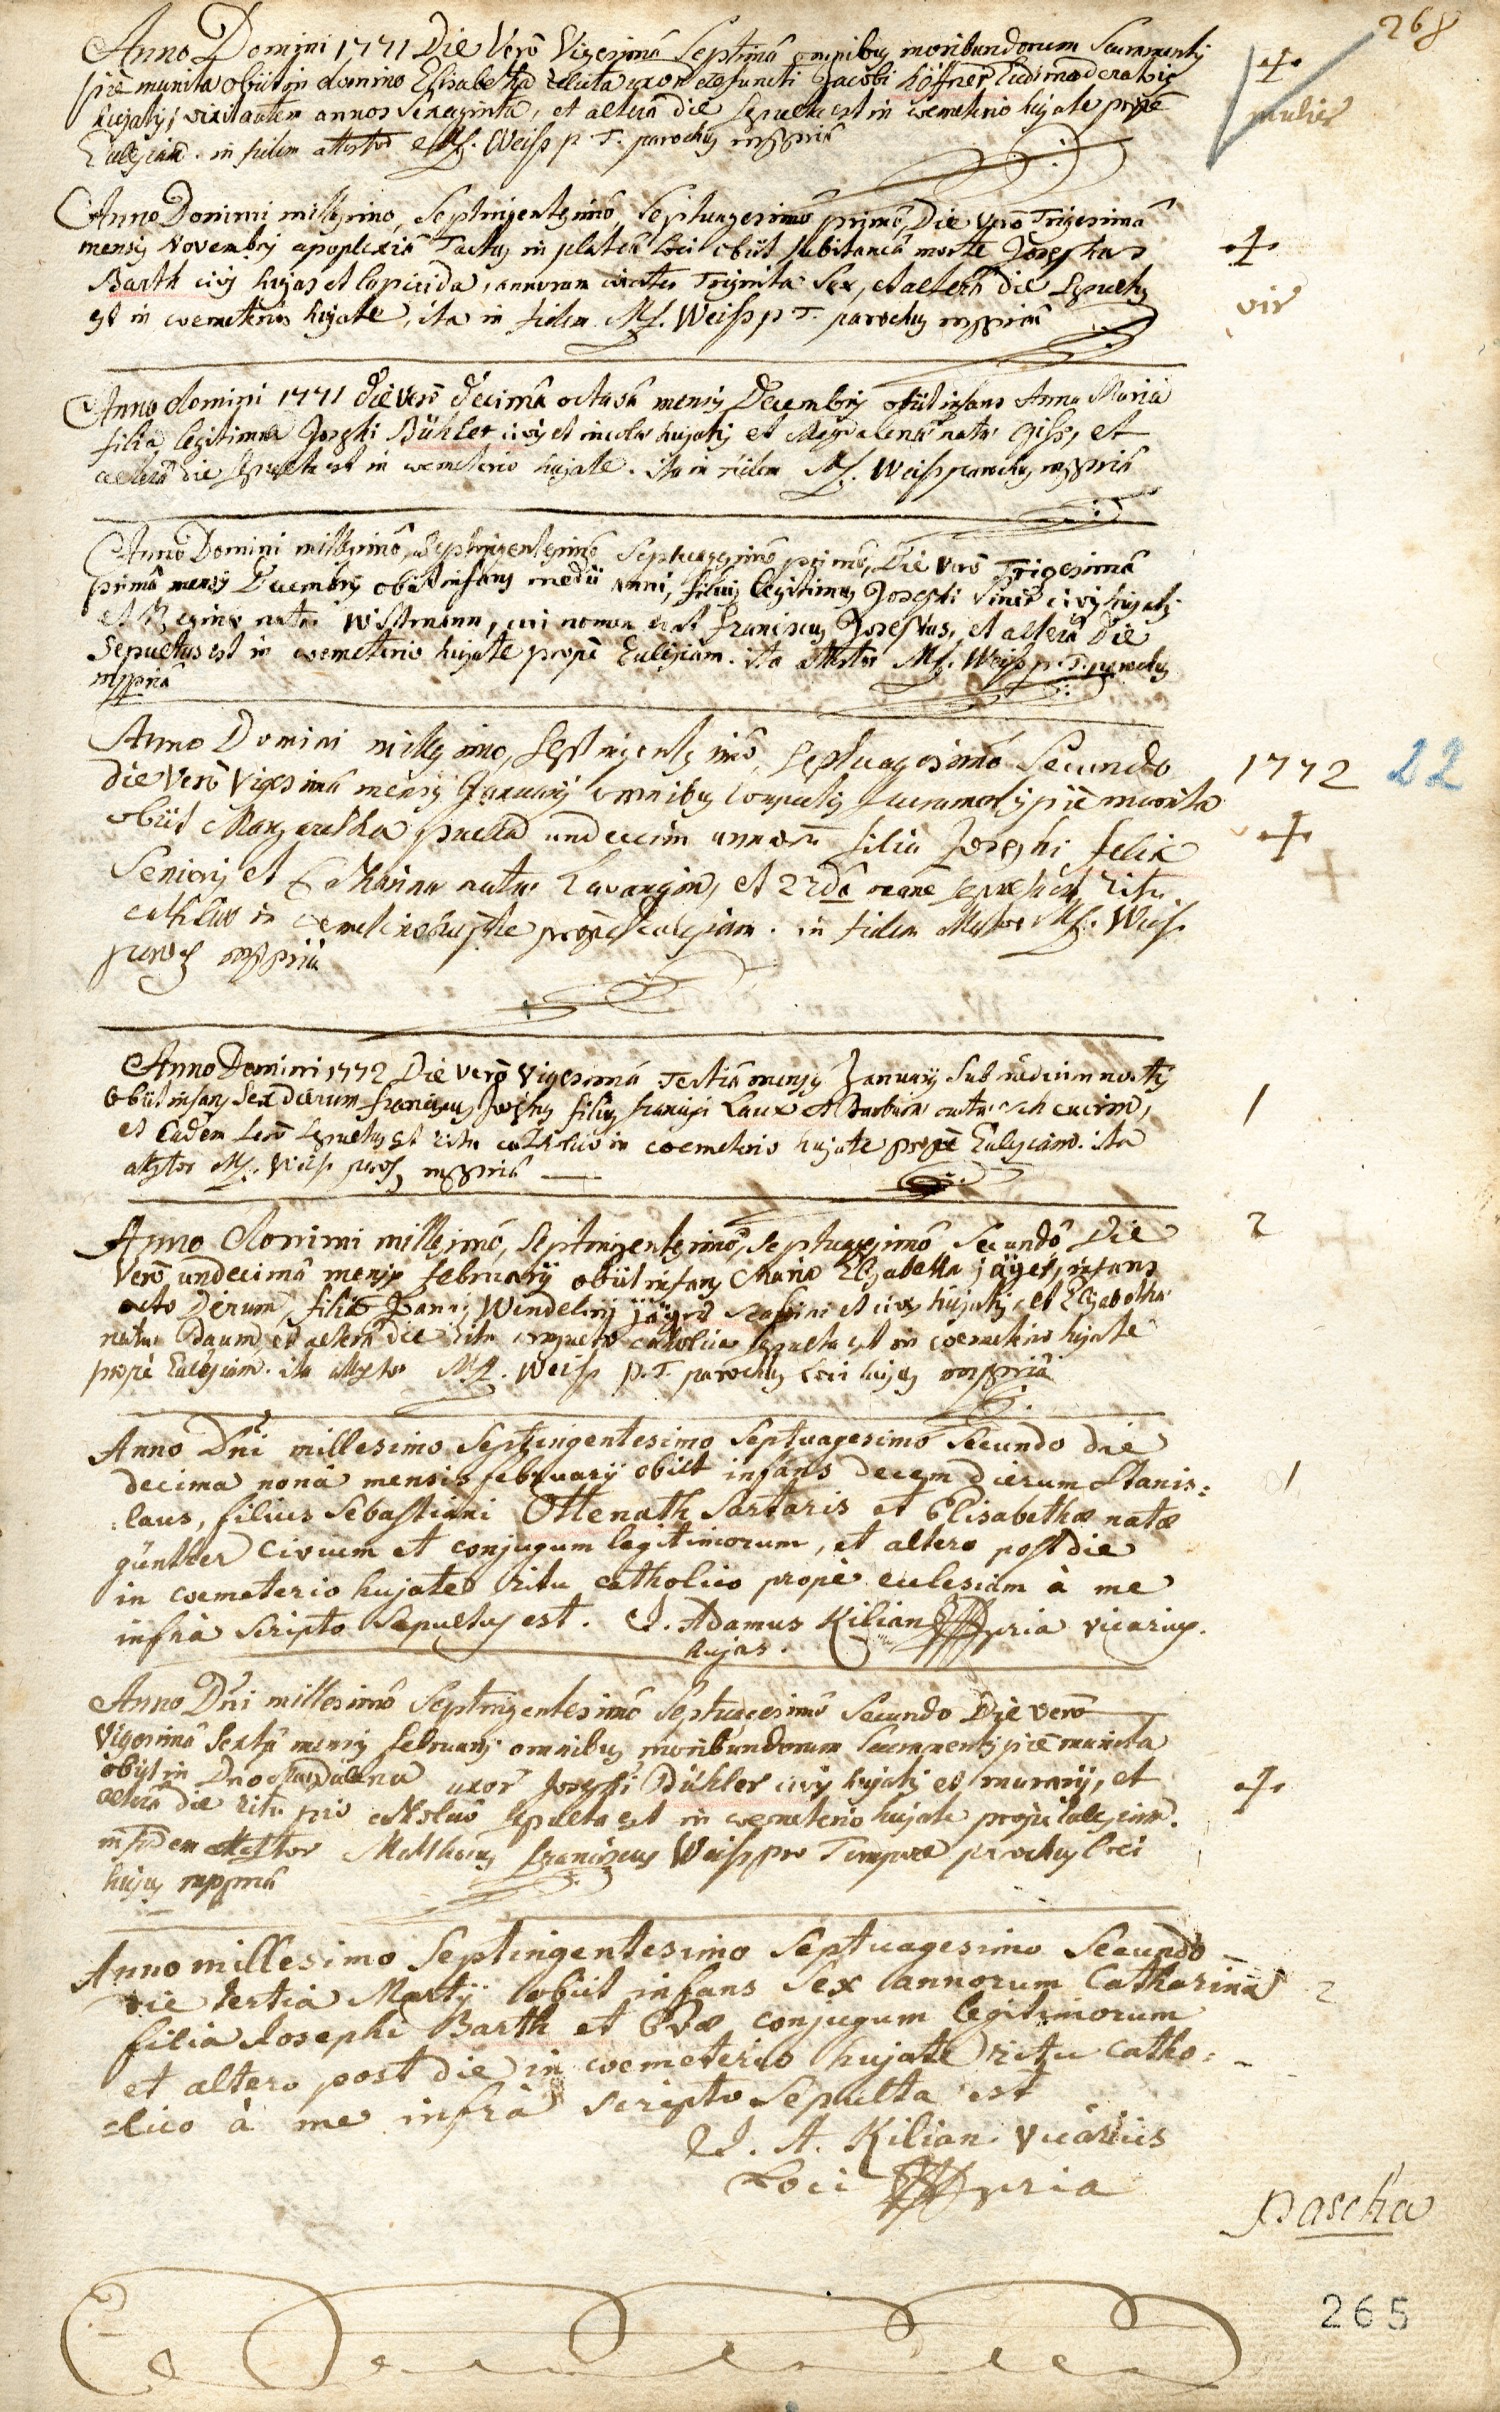 268
Anno Domini 1771 Die Verò Vigesimâ Septimâ omnibus moribundorum Sacramentis
piè munita obiit in domino Elisabetha relicta uxor defuncti Jacobi Höffner Ludimoderatoris
hujatis, vixit autem annos Sexaginta, et alterâ die sepulta est in coemeterio hujate propè
Eclesiam. in fidem attestor Mf. Weiss p. T. parochus mppriâ
mulier
Anno Domini millesimo, Septingentesimô, Septuagesimô primô, Die verò Trigesimâ
mensis Novembris apoplexiâ Tactus in plateâ loci obiit subitaneâ morte Josephus
Barth civis hujas et lapicida, annorum circiter Triginta Sex, et alterâ die Sepultus
est in coemeterio hujate, ita in fidem Mf. Weiss p T. parochus mppriâ
vir
Anno domini 1771 die verò decimâ octavâ mensis Decembris obiit infans Anna Maria
filia legitima Josephi Bühler civis et incolae hujatis et Magdalenae natae Giss, et
alterâ die Sepulta est in coemeterio hujate. ita in fidem Mf. Weiss parochus mppriâ
Anno Domini millesimô, Septingentesimô Septuagesimô primô, Die verò Trigesimâ
primâ mensis Decembris obiit infans medii anni, filius legitimus Josephi civis hujatis
et Reginae natae Wistmann, cui nomen erat Franciscus Josephus, et alterâ Die
Sepultus est in coemeterio hujate propè Eclesiam. ita attestor Mf. Weiss p. T. parochus
mppriâ
Anno Domini millesimo, Septingentesimô, Septuagesimô Secundo
1772 22
die Verò Vigesimâ mensis Januarij omnibus consuetis sacramentis piè munita
obiit Margaretha puella undecim annorū filia Josephi Felix
Senioris et Catharinae natae Lavangin, et 22dâ manè sepulta est Ritu
cathlico in coemeterio hujate propè Eclesiam. in fidem Mf. Weiss
paroch mppriâ
Anno Domini 1772 Die verò Vigesimâ Tertiâ mensis Januarij Sub medium noctis
Obiit infans Sex dierum Franciscus Josephus filius Francisci Laux et Barbarae natae
et Eadem Serò Sepultus est ritu catholico in coemeterio hujate propè Eclesiam. ita
attestor Mf. Weiss paroch mppriâ
1
Anno domini millesimô, Septingentesimô, Septuagesimô Secundô, Die
2
Verò undecimâ mensis Februarij obiit infans Maria Elisabetha jäger, infans
octo Dierum, filia Joannis Wendelini jäger et civis hujatis, et Elisabethae
natae Daum, et alterâ die ritu consueto catholico sepulta est in coemeterio hujate
propè Eclesiam. ita attestor Mf. Weiss p. T. parochus loci hujus mppriâ
Anno Dni millesimo Septingentesimo Septuagesimo Secundo die
decima nonâ mensis februarij obiit infans decem dierum Stanis:
1
:laus, filius Sebastiani Ottenath Sartoris et Elisabethae natae
günther Civium et conjugum legitimorum, et altero post die
in coemeterio hujate ritu catholico propè eclesiam à me
infrà Scripto Sepultus est. J. Adamus Kilian mppria vicarius
hujas.
Anno Dni millesimô Septingentesimô Septuagesimô Secundo Die verò
Vigesimâ Sextâ mensis februarij omnibus moribundorum Sacramentis piè munita
obiit in Dno Magdalena uxor Josephi Bühler civis hujatis et murarij, et
alterâ die ritu pio catholico sepulta est in coemeterio hujate propè Eclesiam.
in fidem attestor Matthaeus Franciscus Weiss pro Tempore parochus loci
hujus mppriâ
Anno millesimo Septingentesimo Septuagesimo Secundo
die tertia Martij obiit infans Sex annorum Catharina
2
filia Josephi Barth et Evae conjugum legitimorum
et altero post die in coemeterio hujate ritu catho:
:lico à me infrà scripto Sepulta est
J. A. Kilian Vicarius
Loci mppria
Pascha
265